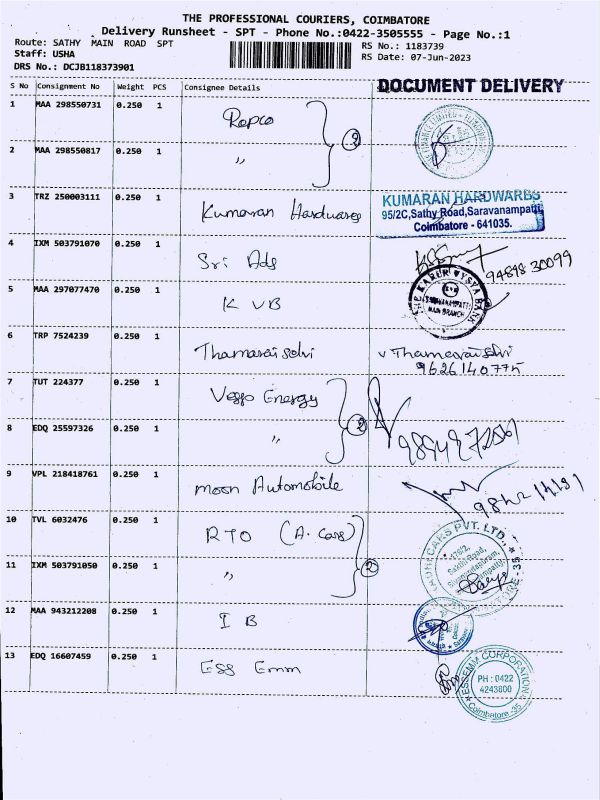 THE PROFESSIONAL COURIERS, COIMBATORE
Delivery Runsheet - SPT - Phone No.:0422-3505555 - Page No.:1
Route: SATHY MAIN ROAD SPT
Staff: USHA
DRS No.: DCJB118373901
RS No.: 1183739
RS Date: 07-Jun-2023
DOCUMENT DELIVERY
S No Consignment No Weight PCS Consignee Details
1 MAA 298550731 0.250 1 Repco
2 MAA 298550817 0.250 1 "
2
3 TRZ 250003111 0.250 1 Kumaran Hardwares
KUMARAN HARDWARES
95/2C,Sathy Road,Saravanampatti,
Coimbatore - 641035.
4 IXM 503791070 0.250 1 Sri Ads
94898 30099
5 MAA 297077470 0.250 1 KVB
THE KARUR VYSYA BANK
SARAVANAMPATTI
MAIN BRANCH
6 TRP 7524239 0.250 1 Thamarai Selvi
v Thamarai Selvi
9626140775
7 TUT 224377 0.250 1 Energy
8 EDQ 25597326 0.250 1 "
2
9 VPL 218418761 0.250 1 moon Automobile
10 TVL 6032476 0.250 1 RTO (A. Cars)
11 IXM 503791050 0.250 1 "
2
CARS PVT. LTD.,
Sakthi Road,
12 MAA 943212208 0.250 1 I B
13 EDQ 16607459 0.250 1 Ess Emm
ESSEMM CORPORATION
PH : 0422
4243800
Coimbatore -35